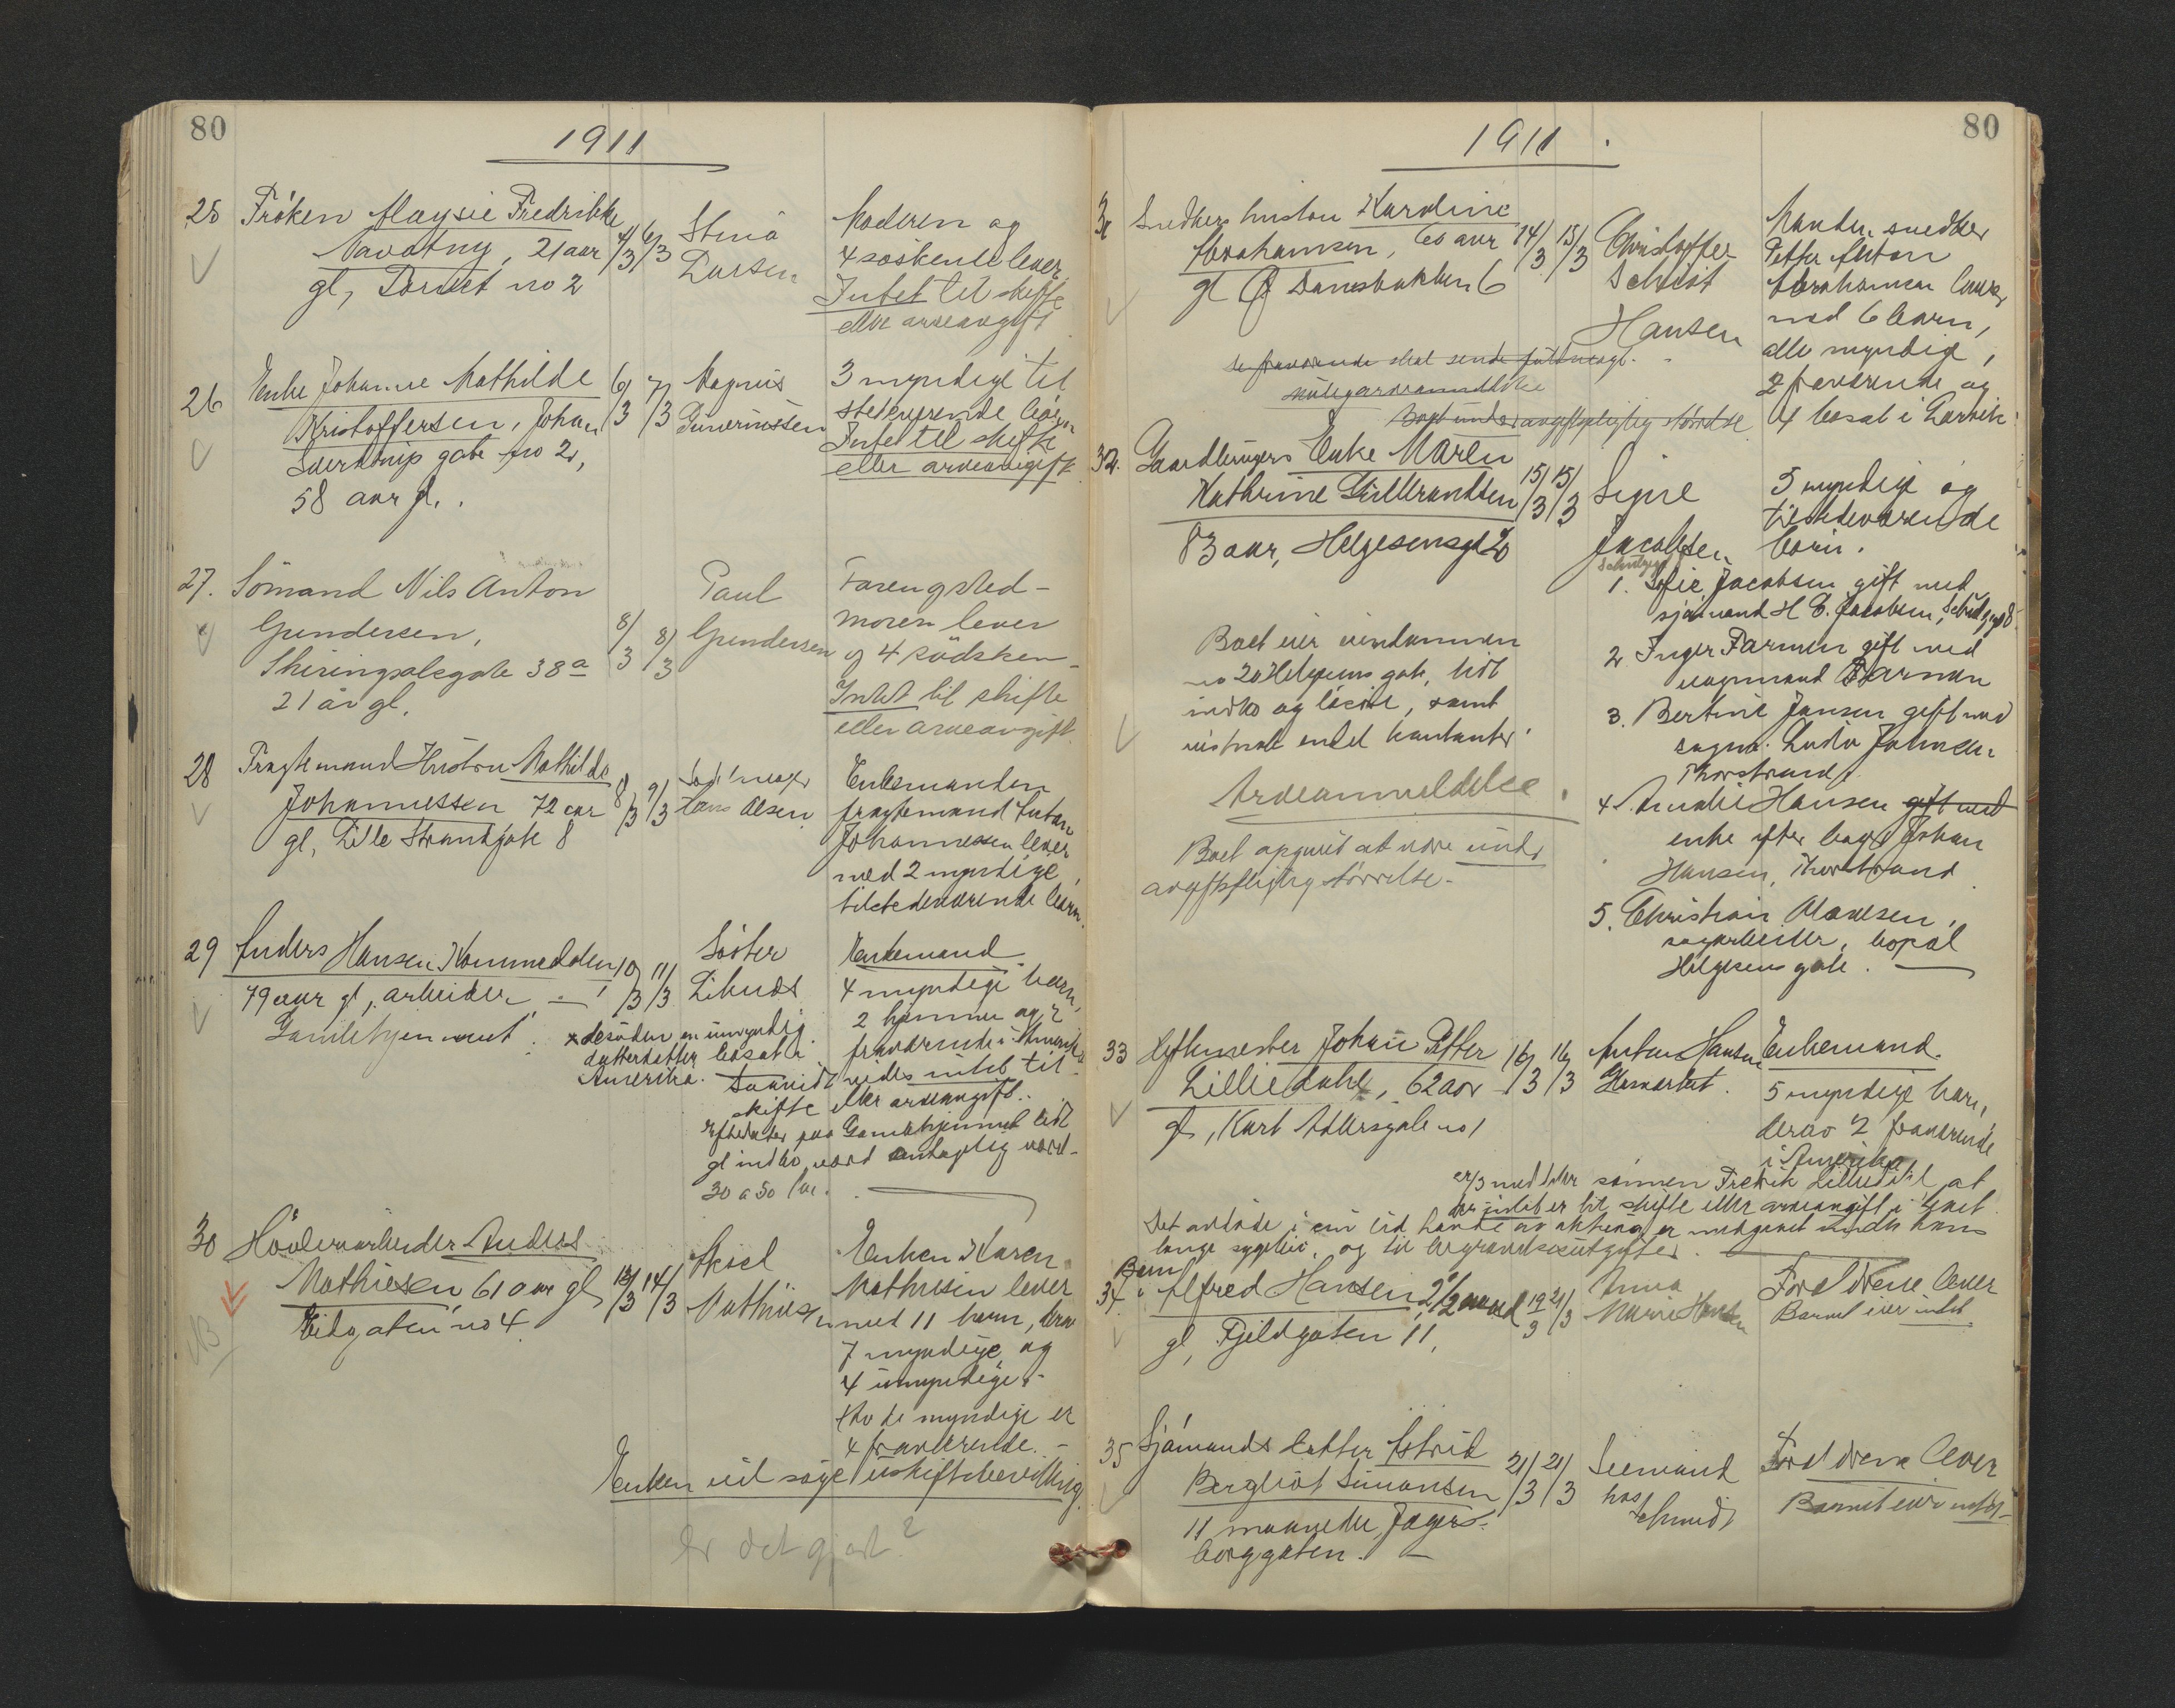 80
1911
25 Fröken Maysie Fredrikke
Navatny, 21 aar
gl, Torvet no 2
4/3 6/3
Stina
Larsen
Moderen og
4 söskende lever
Intet til skifte
eller arveavgift
26 Enke Johanne Mathilde
Kristoffersen, Johan
Sverdrups gate no 2,
58 aar gl.
6/3 7/3
Magnus
Gunerinssen
3 myndige til
stedeværende börn
Intet til skifte
eller arveavgift
27. Sömand Nils Anton
Gundersen,
Skiringsalsgate 38a
21 år gl.
8/3 8/3
Paul
Gundersen
Faren og sted-
moren lever
og 4 södsken
Intet til skifte
eller arveavgift
28 Fragtemand Hustru Mathilde
Johannessen 72 aar
gl, Lille Strandgate 8
8/3 9/3
Hans Olsen
Enkemanden
fragtemand Anton
Johannessen lever
med 2 myndige,
tilstedeværende börn.
29 Anders Hansen Kommedalen
79 aar gl, arbeider
Gamlehjemmet.
10/3 11/3
Söster
Enkemand
4 myndige barn,
2 hjemme og 2
fraværende i Amerika
x desuden en umyndig
datterdatter bosat i
Amerika.
Saavidt vides intet til
skifte eller arveavgift.
efterlater paa Gamlehjemmet lidt
gl indbo, værd antagelig værd
30 a 50 kr.
30 Hövleriarbeider Andreas
Mathiesen 61 aar gl
no 4
NB
13/3 14/3
Aksel
Mathiesen
Enken Karen
Mathiesen lever
med 11 barn, hvorav
7 myndige og
4 umyndige.
Av de myndige er
4 fraværende. -
Enken vil söge uskiftebevilling.
Er det gjort?
80
1911.
31 Snedkers hustru Karoline
Abrahamsen, 60 aar
gl Ø Damsbakken 6
14/3 15/3
Christoffer
Schiöt
Hansen
Manden snedker
Petter Anton
Abrahamsen lever
med 6 barn,
alle myndige,
2 fraværende og
4 bosat i Larvik.
de fraværende skal sende fuldmagt.
Boet under avgiftspligtig störrelse
32. Gaardbrugers Enke Maren
Kathrine Gulbrandsen
83 aar, Helgesensgt 20
15/3 15/3
Signe
Jacobsen
5 myndige og
tilstedeværende
barn.
1. Sofie Jacobsen gift med
sjömand H C. Jacobsen,
2. Inger Farmen gift med
vognmand Farmen
3. Bertine Jansen gift med
Ludv Johnsen
Thorstrand
4. Amalie Hansen gift med
enke efter Johan
Hansen, Thorstrand
5. Christian Olavesen,
sagarbeider, bopæl
Helgesens gate.
Boet eier eiendommen
no 20 Helgesens gate, lidt
indbo og lösöre, samt
endel kontanter.
Arveanmeldelse.
Boet opgivet at være under
avgiftspligtig störrelse.
33 Johan Petter
Lilliedahl, 62 aar
gl, Kurt Adlersgate no 1
16/3 16/3
Anton Hansen
Enkemand.
5 myndige barn,
derav 2 fraværende
i Amerika
22/3 meddeler sönnen Fredrik Lilliedahl at
der intet er til skifte eller arveavgift i boet.
Det avdöde i sin tid hadde av er medgaaet under hans
lange sygeleie, og til begravelsesutgifter.
Barn
34. Alfred Hansen 2 1/2 maaned
gl, Fjeldgaten 11,
19/3 21/3
Anna
Marie Hansen
Foreldrene lever
Barnet eier intet
35 Sjömands datter Astrid
Bergliot Simonsen
11 maaneder, Jegers-
borggaten.
21/3 21/3
hos
Schmidt
Foreldrene lever
Barnet eier intet